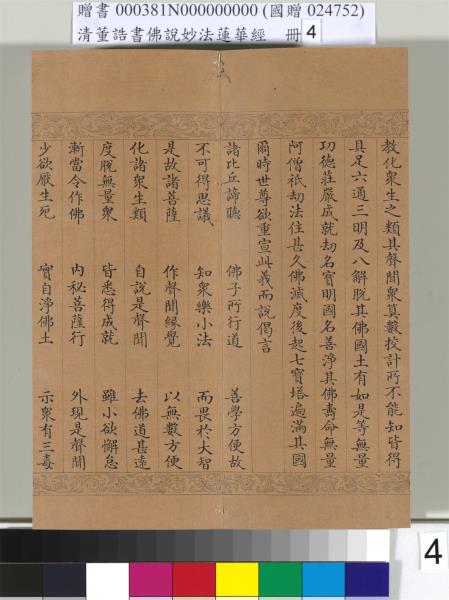 贈書 000381N000000000 (國贈 024752)
清董誥書佛說妙法蓮華經 冊 4
教化衆生之類其聲聞衆算數挍計所不能知皆得
具足六通三明及八解脫其佛國土有如是等無量
功德莊嚴成就劫名寶明國名善淨其佛壽命無量
阿僧祇劫法住甚久佛滅度後起七寶塔遍滿其國
爾時世尊欲重宣此義而說偈言
諸比丘諦聽 佛子所行道 善學方便故
不可得思議 知衆樂小法 而畏於大智
是故諸菩薩 作聲聞緣覺 以無數方便
化諸衆生類 自說是聲聞 去佛道甚遠
度脫無量衆 皆悉得成就 雖小欲懈怠
漸當令作佛 內秘菩薩行 外現是聲聞
少欲厭生死 實自淨佛土 示衆有三毒
4